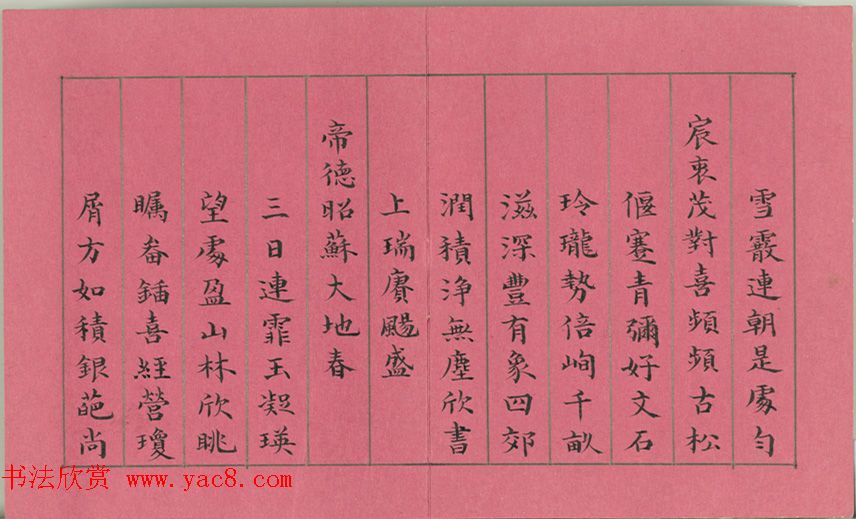 雪霰連朝是處勻
宸衷茂對喜頻頻古松
偃蹇青彌好文石
玲瓏勢倍峋千畝
滋深豐有象四郊
潤積浄無塵欣書
上瑞賡颺盛
帝德昭蘇大地春
三日連霏玉凝瑛
望處盈山林欣眺
矚畚鍤喜經營瓊
屑方如積銀葩尚
书法欣赏 www.yac8.com